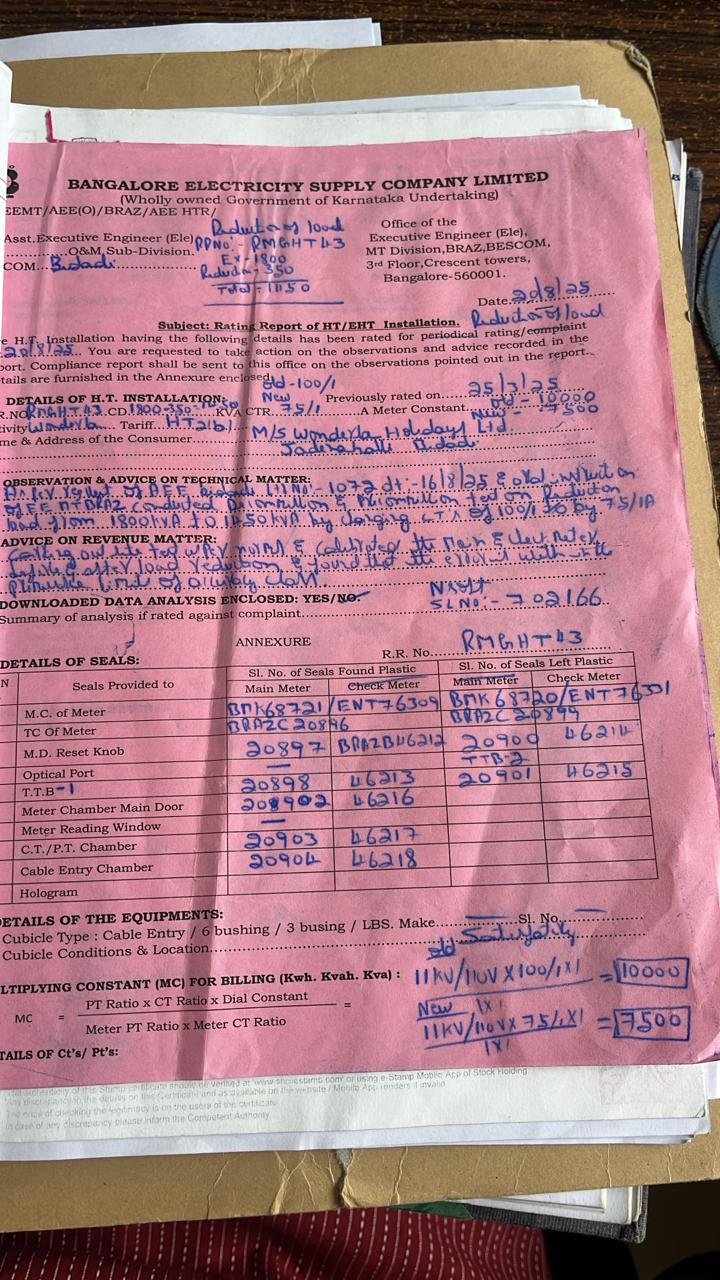 BANGALORE ELECTRICITY SUPPLY COMPANY LIMITED
(Wholly owned Government of Karnataka Undertaking)
EEMT/AEE(O)/BRAZ/AEE HTR/
Reduction of load
Asst.Executive Engineer (Ele) RRNo:- RMGHT43
O&M, Sub-Division. Ex-1800
COM...Bidadi Reduction-350
Total-1450
Office of the
Executive Engineer (Ele),
MT Division,BRAZ,BESCOM,
3rd Floor,Crescent towers,
Bangalore-560001.
Date 20/8/25
Subject: Rating Report of HT/EHT Installation. Reduction of load
H.T. Installation having the following details has been rated for periodical rating/complaint
20/8/25. You are requested to take action on the observations and advice recorded in the
port. Compliance report shall be sent to this office on the observations pointed out in the report.
tails are furnished in the Annexure enclosed.
old-100/1
DETAILS OF H.T. INSTALLATION: New Previously rated on 25/3/25
R.NO RMGHT43 CD 1800-350=1450 KVA CTR 75/1 A Meter Constant old-10000
New-7500
ivity Wonderla Tariff HT2(b)
me & Address of the Consumer. M/S Wonderla Holidays Ltd
Bidadi
OBSERVATION & ADVICE ON TECHNICAL MATTER:
As per request of AEE Bidadi No:-1072 dt:-16/8/25 & oral instruction
of EE MTBRAZ conducted & test on Reduction
load from 1800KVA to 1450KVA by changing CT's of 100/1 to by 75/1A
ADVICE ON REVENUE MATTER:
& calibrated the Main & Check Meter
after load reduction & found that the errors within the
limits of accuracy class
DOWNLOADED DATA ANALYSIS ENCLOSED: YES/NO.
Summary of analysis if rated against complaint
SLNO:-702166
ANNEXURE
R.R. No. RMGHT43
DETAILS OF SEALS:
N Seals Provided to Sl. No. of Seals Found Plastic Sl. No. of Seals Left Plastic
Main Meter Check Meter Main Meter Check Meter
M.C. of Meter BMK68721/ENT76309 BMK68720/ENT76331
TC Of Meter BRAZC20896 BRAZC20899
M.D. Reset Knob 20897 BRAZB46212 20900 46214
Optical Port — TTB-2
T.T.B-1 20898 46213 20901 46215
Meter Chamber Main Door 208902 46216
Meter Reading Window —
C.T./P.T. Chamber 20903 46217
Cable Entry Chamber 20904 46218
Hologram
DETAILS OF THE EQUIPMENTS:
Cubicle Type : Cable Entry / 6 bushing / 3 busing / LBS. Make — Sl. No. —
Cubicle Conditions & Location Satisfactory
old
LTIPLYING CONSTANT (MC) FOR BILLING (Kwh. Kvah. Kva) : 11KV/110V X100/1X1 = 10000
1X1
MC = PT Ratio x CT Ratio x Dial Constant =
Meter PT Ratio x Meter CT Ratio
New
11KV/110V X 75/1X1 = 7500
1X1
TAILS OF Ct's/ Pt's:
certificate should be verified at 'www.shcilestamp.com' or using e-Stamp Mobile App of Stock Holding.
Any discrepancy in the details on this Certificate and as available on the website / Mobile App renders it invalid
The onus of checking the legitimacy is on the users of the certificate
In case of any discrepancy please inform the Competent Authority